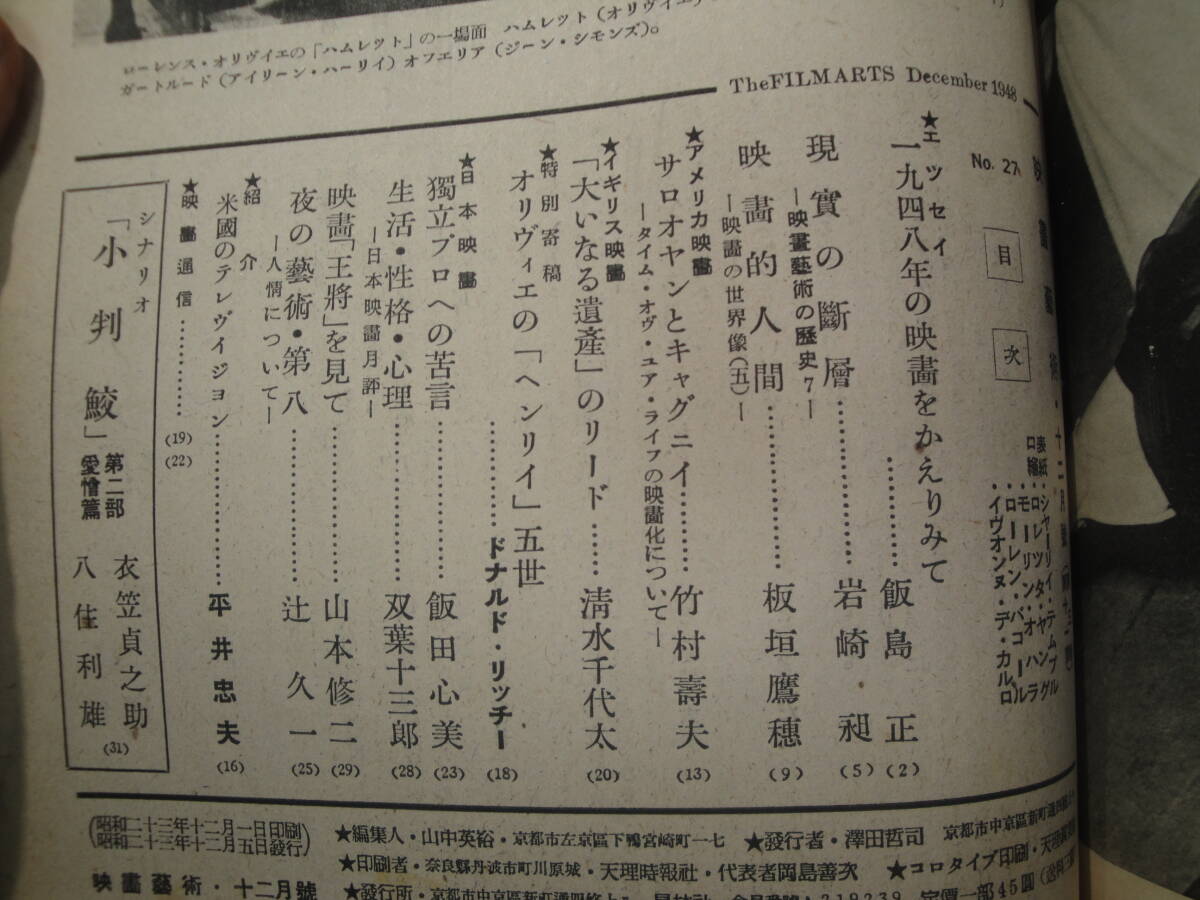 ローレンス・オリヴイエの「ハムレット」の一場面　ハムレット（オリヴイエ）
ガートルード（アイリーン・ハーリイ）オフエリア（ジーン・シモンズ）。
The FILM ARTS December 1948
No. 27
目次
表紙・シヤーリイ・テムプル
口繪・ロレツタ・ヤング
モーリン・オハラ
ローレン・バコール
イヴオンヌ・デ・カルロ
★エツセイ
一九四八年の映畫をかえりみて………飯島正（2）
現實の斷層………岩崎昶（5）
―映畫藝術の歴史７―
映畫的人間………板垣鷹穗（9）
―映畫の世界像（五）―
★アメリカ映畫
サロオヤンとキャグニイ………竹村壽夫（13）
―タイム・オヴ・ユア・ライフの映畫化について―
★イギリス映畫
「大いなる遺產」のリード……清水千代太（20）
★特別寄稿
オリヴィエの「ヘンリイ」五世
………ドナルド・リッチー（18）
★日本映畫
獨立プロへの苦言………飯田心美（23）
生活・性格・心理………双葉十三郎（28）
―日本映畫月評―
映畫「王將」を見て………山本修二（29）
夜の藝術・第八………辻久一（25）
―人情について―
★紹介
米國のテレヴイジョン………平井忠夫（16）
★映畫通信………（19）（22）
シナリオ
「小判鮫」第二部 愛憎篇
衣笠貞之助
八住利雄（31）
昭和二十三年十二月一日印刷
昭和二十三年十二月五日發行
映畫藝術・十二月號
★編集人・山中英裕・京都市左京區下鴨宮崎町一七　★發行者・澤田哲司　京都市中京區新町通
★印刷者・奈良縣丹波市町川原城・天理時報社・代表者岡島善次　★コロタイプ印刷・天理
★發行所・京都市中京區　定價一部45圓